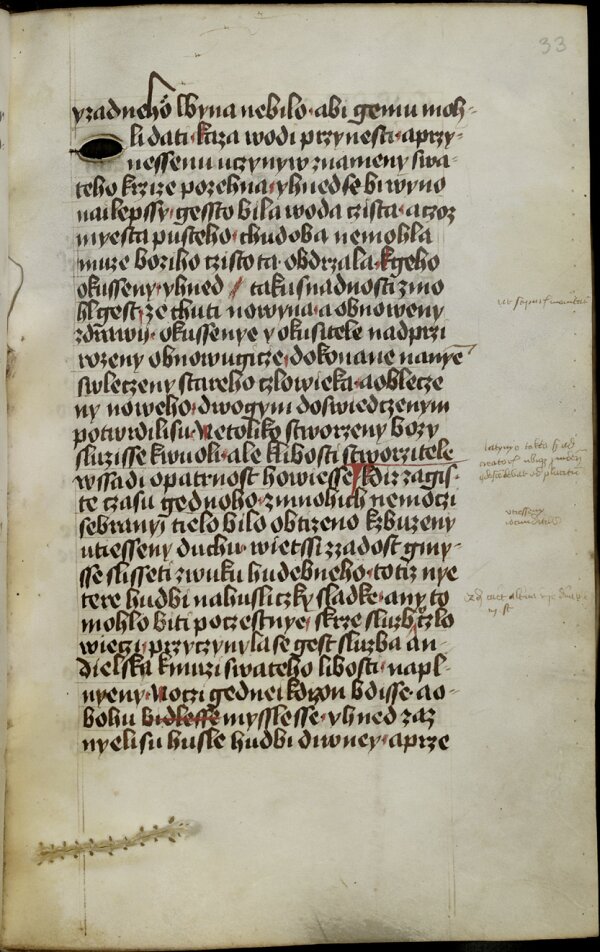 33
yzadneho wyna nebilo · abi gemu moh-
li dati · kaza wodi przynesti · a przy-
nessenu uczynyw znameny swa-
teho krzize pozehna · yhned se bi wyno
nailepssy · gessto bila woda czista · a czoz
myesta pusteho · chudoba nemohla
muze boziho czistota obdrzala · k geho
okusseny · yhned takusnadnosti zmo
hl gest · ze chuti nowyna · a obnoweny
zdrawy · okussenye y okusitele nadprzi
rozeny obnowugicze · dokonane nanye
swleczeny stareho czlowieka · a oblecze
ny noweho · dwogym doswiedczenym
potwrdili su · Netoliko stworzeny bozy
sluzisse k wuoli · ale k libosti stworzitele
wssadi opatrnost howiesse · kdiz zagis-
te czasu gednoho · z mnohich nemoczi
sebranyi tielo bilo obtizeno k zbuzeny
utiesseny duchu · wietssi zzadost gmy-
sse slisseti zwuku hudebneho · totiz nye
tere hudbi nahusliczky sladke · any to
mohlo biti poczestnye · skrze sluzb czlo
wieczi · przyczynyla se gest sluzba an-
dielska k muzi swateho libosti · napl-
nyeny · Noczi gednei kdizon bdisse · a o-
bohu bidlesse mysslesse · yhned zaz
nyeli su husle hudbi diwney · a prze